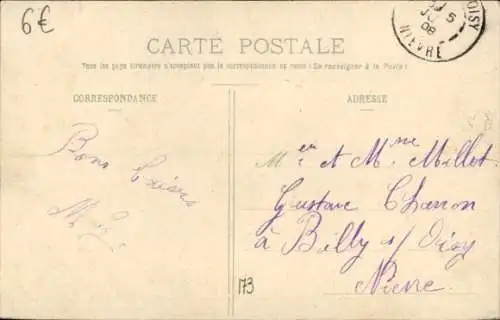 6€
OISY
5
08
NIEVRE
CARTE POSTALE
Tous les pays étrangers n'acceptent pas la correspondance au recto (Se renseigner à la Poste)
CORRESPONDANCE
ADRESSE
Bons Baisers
Mr et Mme Millot
Gustave Charron
à Billy s/ Oisy
Nièvre
173